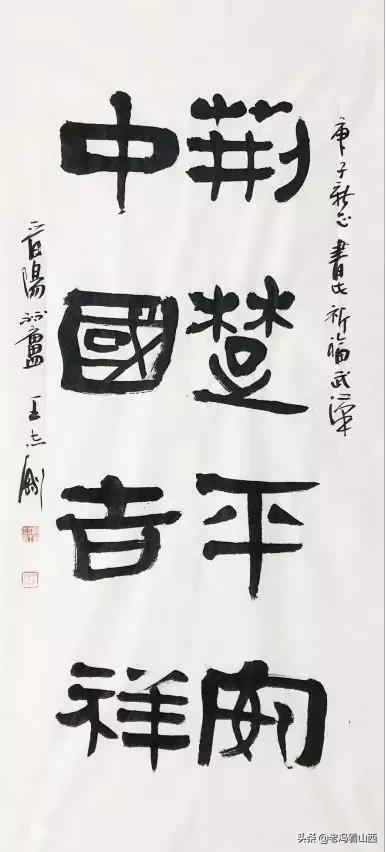 庚子新正書此祈福武漢
荆楚平安
中國吉祥
晉陽 廬 王志剛
头条 @老冯看山西